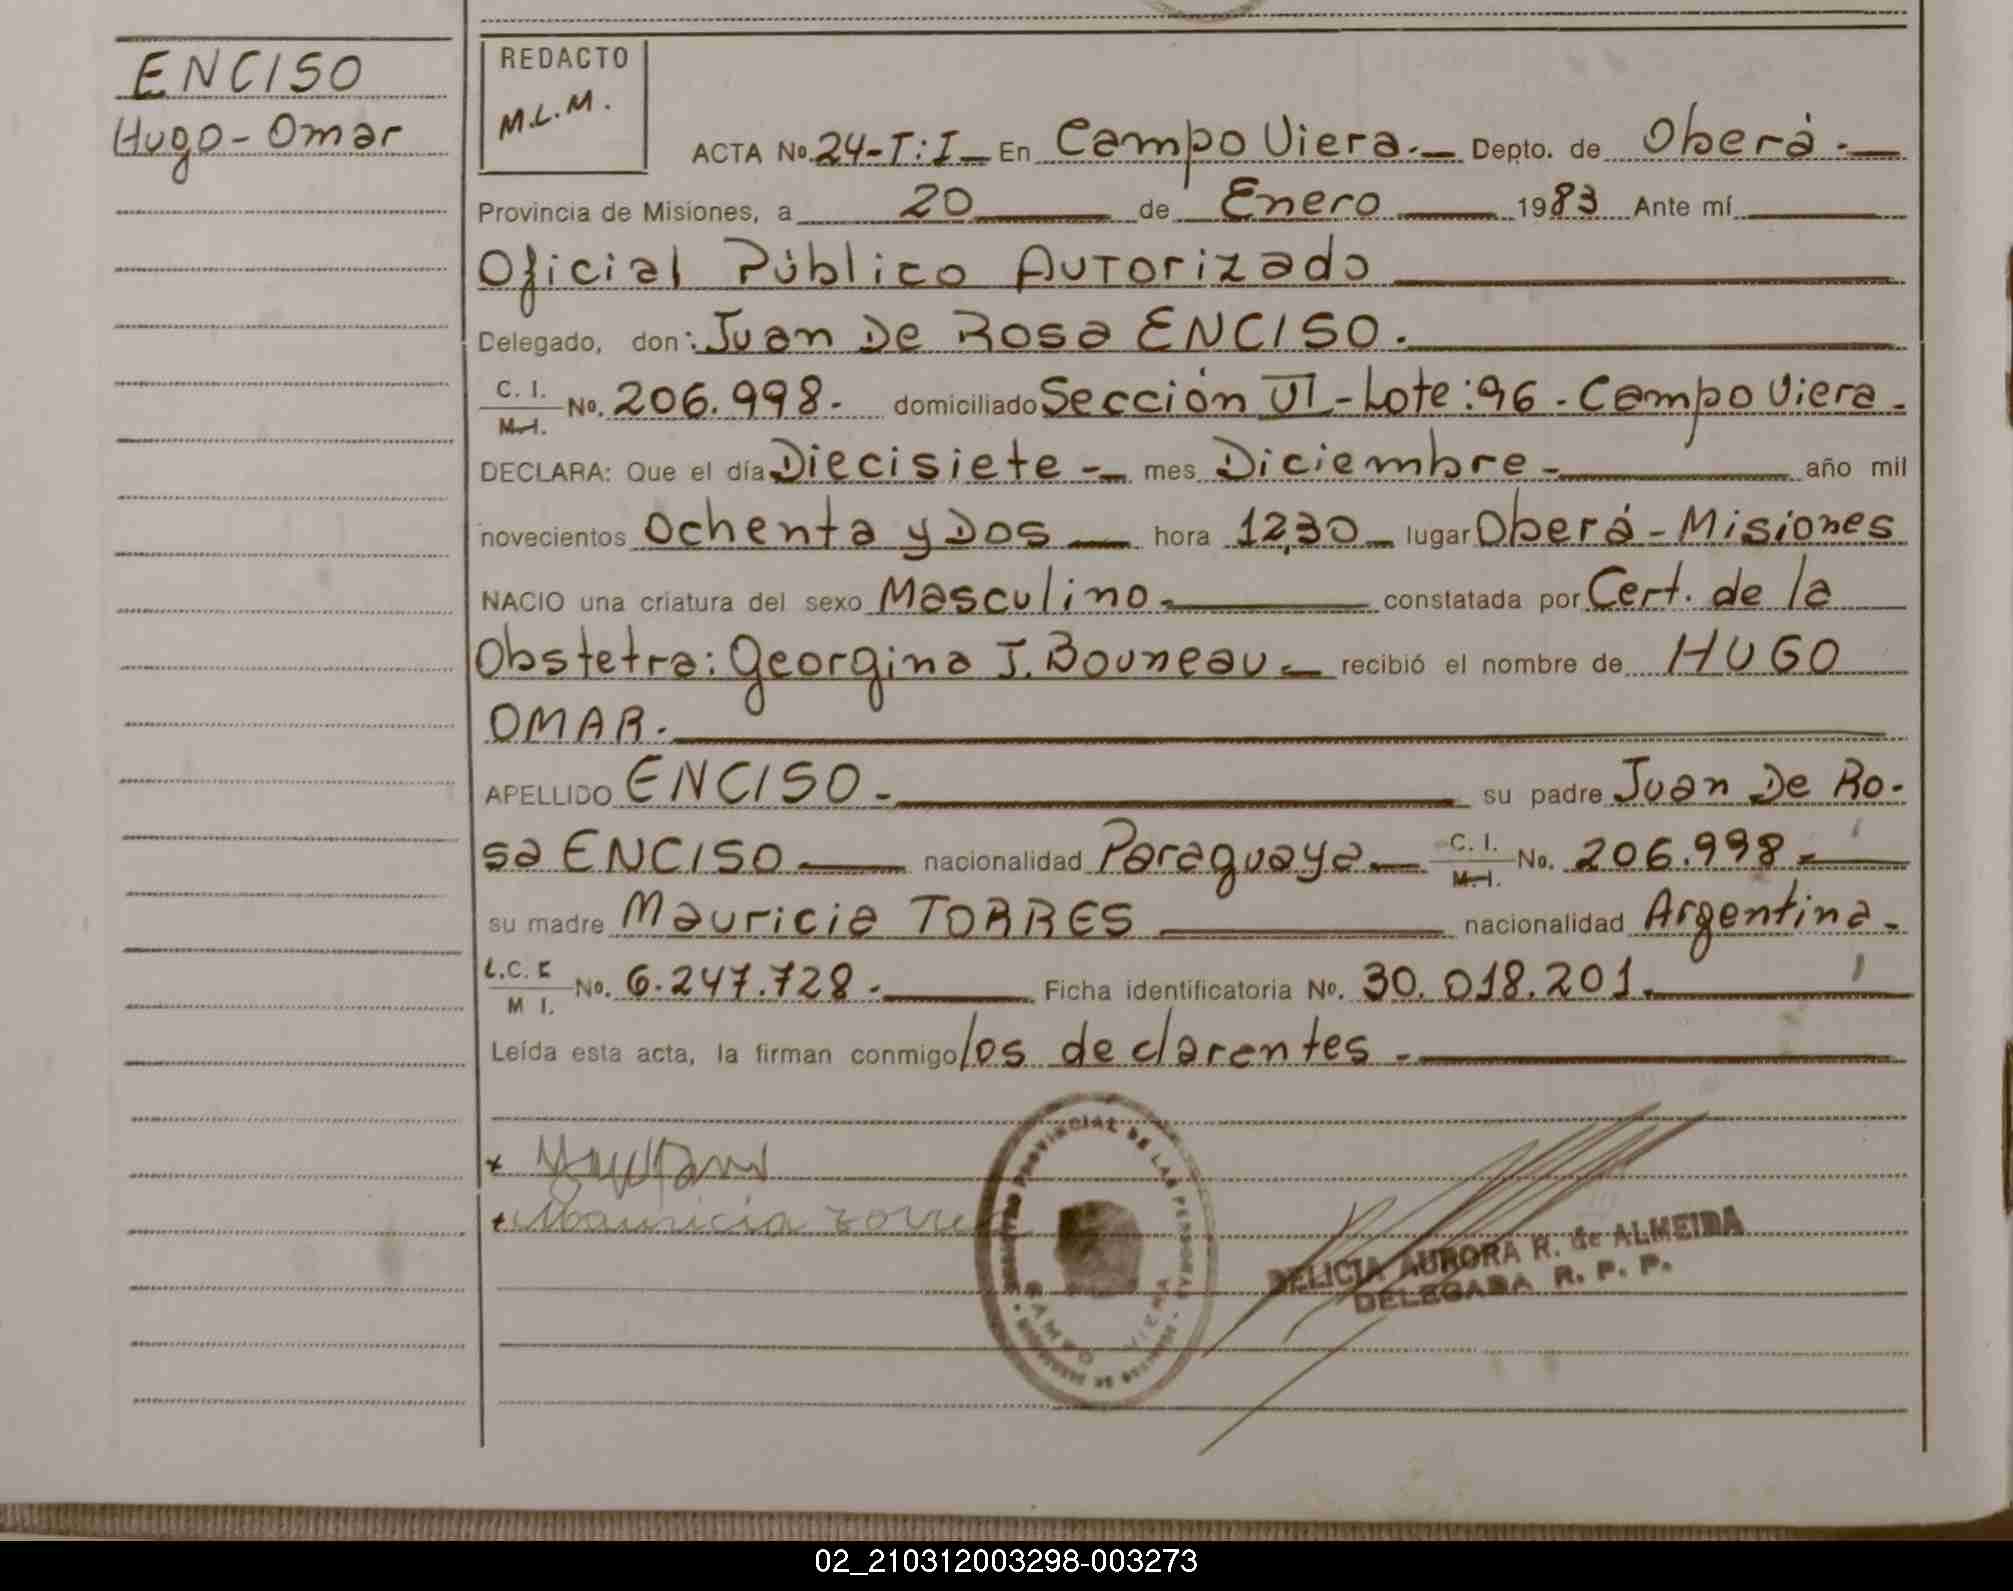 ENCISO
Hugo - Omar
REDACTO
M.L.M.
ACTA No. 24-T:I En Campo Viera.- Depto. de Oberá.-
Provincia de Misiones, a 20 de Enero 1983 Ante mí
Oficial Público Autorizado
Delegado, don: Juan De Rosa ENCISO.
C. I. M.I. No. 206.998.- domiciliado Sección VI - Lote: 96 - Campo Viera.
DECLARA: Que el día Diecisiete - mes Diciembre - año mil
novecientos Ochenta y Dos hora 12,30 lugar Oberá - Misiones
NACIO una criatura del sexo Masculino.- constatada por Cert. de la
Obstetra: Georgina J. Bouneau.- recibió el nombre de HUGO
OMAR.
APELLIDO ENCISO.- su padre Juan De Ro-
sa ENCISO nacionalidad Paraguaya C. I. M.I. No. 206.998-
su madre Mauricia TORRES nacionalidad Argentina.-
L.C. M I. No. 6.247.728.- Ficha identificatoria No. 30.018.201.
Leída esta acta, la firman conmigo los declarentes.-
Mauricia Torres
REGISTRO PROVINCIAL DE LAS PERSONAS
CAMPO VIERA
DELICIA AURORA R. de ALMEIDA
DELEGADA R. P. P.
02_210312003298-003273